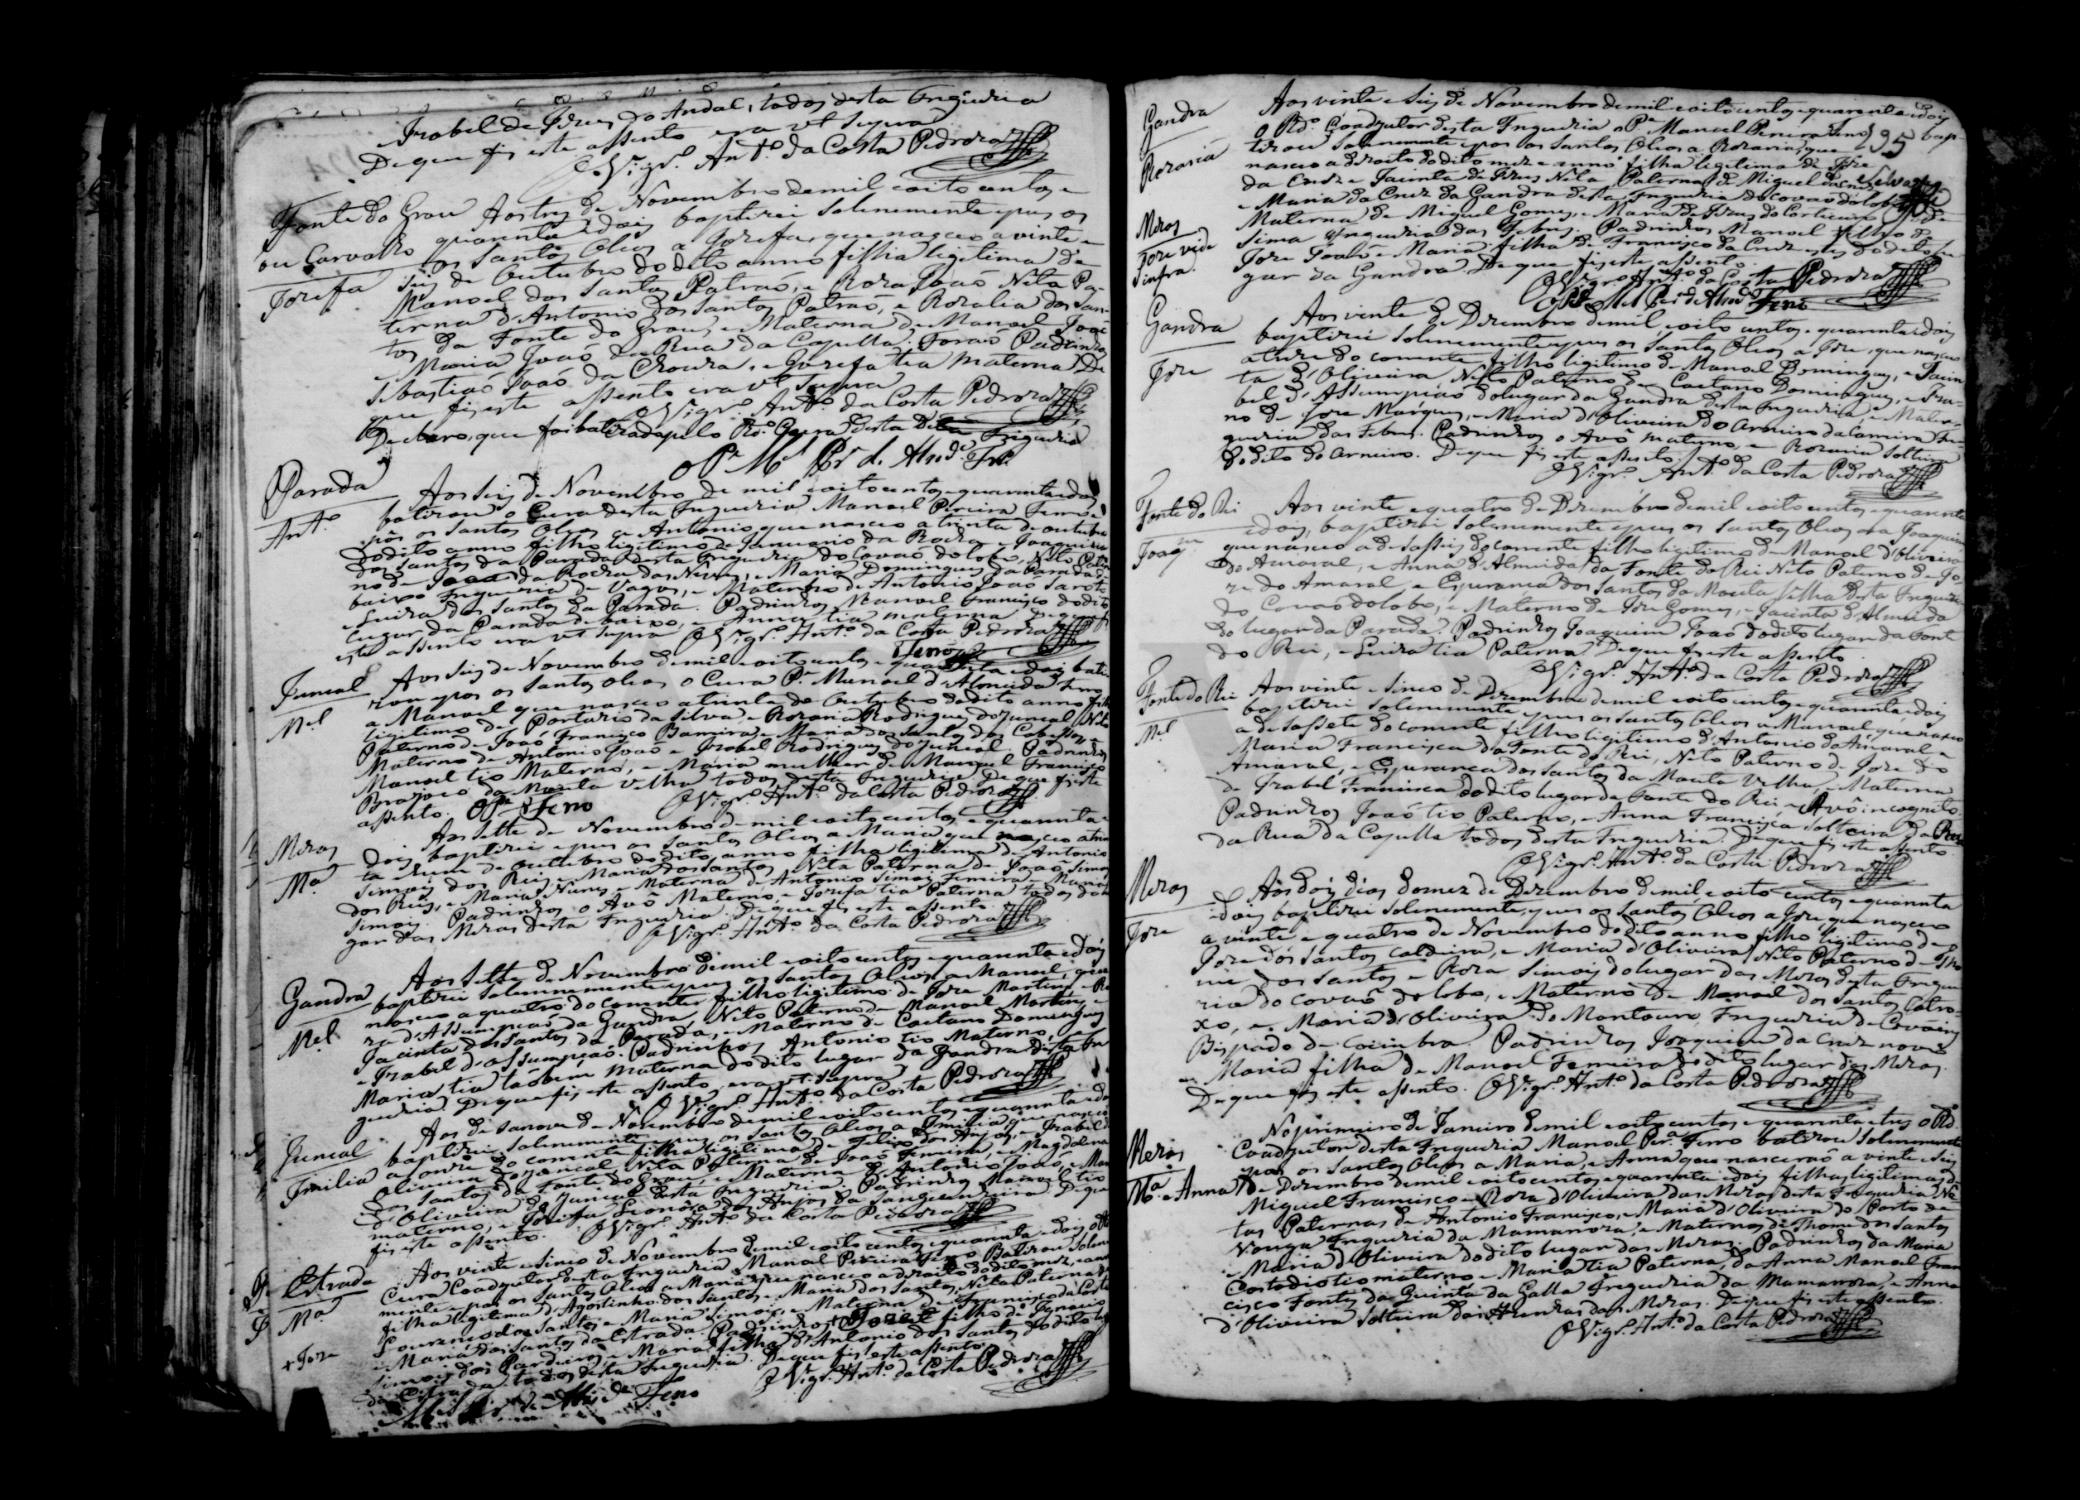 Isabel de Jesus do Andal, todos desta Freguezia
De que fiz este assento era ut supra
O Vigr.º Ant.º da Costa Pedroza
Fonte do Grou Aos tres de Novembro de mil e oito centos e
ou Carvalho quarenta e dois baptizei solenemente e pus os
os Santos Oleos a Jozefa, que nasceo a vinte e
Jozefa seis de Outubro do dito anno filha legitima de
Manoel dos Santos Patrão, e Roza João Neta Pa-
terna d'Antonio dos Santos Patrão, e Rozalia dos San-
tos da Fonte do Grou, e Materna de Manoel João
e Maria João da Rua da Capella. Forão Padrinhos
Sebastião João da e Jozefa tia materna De
que fiz este assento era ut supra
O Vigr.º Ant.º da Costa Pedroza
Declaro, que foi batizado pelo Rd.º Cura desta Dita Freguezia
o P.e M.el Pr.ª d' Almd.ª
Parada
Aos seis de Novembro de mil e oito centos e quarenta e dois
Ant.º batizou o Cura desta Freguezia Manoel Pereira
e pôs os Santos Oleos a Antonio que nasceo a trinta de outubro
do dito anno filho legitimo de Januario da Rocha e Joaquina
dos Santos da Parada desta Freguezia do Covão do lobo, Neto Pater-
no de João da Rocha das Neves, e Maria Domingues da Parada
baixo Freguezia de Vagos, e Materno de Antonio João
e Luiza dos Santos da Parada. Padrinhos Manoel Francisco do dito
lugar da Parada de baixo, e Anna tia materna De que fiz
este assento era ut supra O Vigr.º Ant.º da Costa Pedroza
Juncal Aos seis de Novembro de mil e oito centos e quarenta e dois bati-
zou e pos os Santos oleos o Cura P.e Manoel d'Almeida
M.el a Manoel que nasceo a trinta de Outubro do dito anno filho
legitimo de Portario da Silva e Rozaria Rodrigues do Juncal Neto
Paterno de João Francisco e Maria dos Santos das
Materno de Antonio João e Izabel Rodrigues do Juncal. Padrinhos
Manoel tio Materno, e Maria mulher de Manoel Francisco
da Mouta velha todos desta Freguezia De que fiz este
assento. O Vigr.º Ant.º da Costa Pedroza
Mezas Aos sette de Novembro de mil e oito centos e quarenta e
M.ª dois baptizei e pus os Santos Oleos a Maria que nasceo a trin-
ta e hum de Outubro do dito anno filha legitima de Antonio
Simois dos Reis e Maria dos Santos Neta Paterna de João Simois
dos Reis, e Maria Nunes e Materna de Antonio Simois Ferreira e Maria
Simois. Padrinhos o Avô Materno, e Jozefa tia Paterna todos do lu-
gar das Mezas desta Freguezia. De que fiz este assento
O Vigr.º Ant.º da Costa Pedroza
Gandra Aos sette de Novembro de mil e oito centos e quarenta e dois
baptizei solennemente e pus os Santos Oleos a Manoel, que
M.el nasceo a quatro do corrente filho legitimo de Joze Martins e Ro-
za d'Assumpção da Gandra, Neto Paterno de Manoel Martins e
Jacinta dos Santos da Parada, e Materno de Caetano Domingues
e Izabel d'assumpção. Padrinhos Antonio tio Materno, e
Maria tia tãobem materna do dito lugar da Gandra desta Fre-
guezia De que fiz este assento, era ut supra
O Vigr.º Ant.º da Costa Pedroza
Juncal Aos de sanove de Novembro de mil e oito centos e quarenta e dois
baptizei solenemente e pus os Santos Oleos a Emilia que nasceo
Emilia a onze do corrente filha legitima de Felix dos Anjos, e Izabel d'
Oliveira do Juncal Neta Paterna de João Ferreira, e Magdalena
dos Santos da Fonte do Grou, e Materna de Antonio João, e Maria
d'Oliveira do Juncal desta Freguezia. Padrinhos Manoel tio
materno, e Jozefa Leonora dos Anjos da De que
fiz este assento. O Vigr.º Ant.º da Costa Pedroza
Estrada Aos vinte e sinco de Novembro de mil e oito centos e quarenta e dois o Rd.º
Cura Coadjutor desta Freguezia Manoel Pereira Batizou solene-
M.ª mente e pos os Santos Oleos a Maria que nasceo a dezoito do dito mez, e anno
filha legitima d'Agostinho dos Santos, e Maria dos Santos, Neta Paterna de
Lourenço dos Santos e Maria Simois, e Materna de Francisco da Costa
+ Joze e Maria dos Santos da Estrada. Padrinhos + Joze filho de Ignacio
Simois dos Pardeiros e Maria filha d'Antonio dos Santos do dito lugar
da Estrada todos desta Freguezia. De que fiz este assento
O Vigr.º Ant.º da Costa Pedroza
Gandra Aos vinte e seis de Novembro de mil e oito centos e quarenta e dois
195
O Rd.º Coadjutor desta Freguezia o P.e Manoel Pereira bap-
Rozaria tizou solenemente e pos os Santos Oleos a Rozaria, que
nasceo a dezoito do dito mez e anno filha legitima de Joze
da Cruz e Jacinta de Jesus Neta Paterna de Miguel da Cruz
e Maria da Cruz da Gandra desta Freguezia do Covão do lobo, e
Mezas Materna de Miguel Gomes, e Maria de Jesus do Corticeiro de
Joze vide sima Freguezia das Febres. Padrinhos Manoel filho de
infra. Joze João e Maria filha de Francisco da Cruz do dito lu-
gar da Gandra De que fiz este assento.
O Vigr.º Ant.º da Costa Pedroza
Gandra Aos vinte de Dezembro de mil, e oito centos, e quarenta e dois
baptizei solenemente e pus os Santos Oleos a Joze, que nasceo
Joze a treze do corrente filho legitimo de Manoel Domingues, e Jacin-
ta d'Oliveira, Neto Paterno de Caetano Domingues, e Iza-
bel d'Assumpção do lugar da Gandra desta Freguezia, e Mater-
no de Joze Marques, e Maria d'Oliveira do Arneiro da Fre-
guezia das Febres. Padrinhos o Avô materno, e Rozaria Solteira
do dito do Arneiro. De que fiz este assento.
O Vigr.º Ant.º da Costa Pedroza
Fonte do Rei Aos vinte e quatro de Dezembro de mil e oito centos e quarenta
e dois, baptizei solenemente e pus os santos Oleos a Joaquim
Joaq.m que nasceo a de sasseis do corrente filho legitimo de Manoel d'Oliveira
do Amaral, e Anna d'Almeida, da Fonte do Rei Neto Paterno de Jo-
ze do Amaral, e Esperança dos Santos da Mouta velha desta Freguezia
do Covão do lobo, e Materno de Joze Gomes, e Jacinta d'Almeida
do lugar da Parada. Padrinhos Joaquim João do dito lugar da Fonte
do Rei, e Luiza tia Paterna De que fiz este assento
O Vigr.º Ant.º da Costa Pedroza
Fonte do Rei Aos vinte e sinco de Dezembro de mil e oito centos e quarenta, e dois
baptizei solenemente e pus os santos Oleos a Manoel, que nasceo
M.el a de sassete do corrente filho legitimo d'Antonio do Amaral e
Maria Francisca da Fonte do Rei, Neto Paterno de Joze do
Amaral, e Esperança dos Santos da Mouta Velha, e Materno
de Izabel Francisca do dito lugar da Fonte do Rei, e Avô incognito.
Padrinhos João tio Paterno, e Anna Francisca solteira da Rua
da Rua da Capella todos desta Freguezia. De que fiz este assento
O Vigr.º Ant.º da Costa Pedroza
Mezas Aos dois dias do mez de Dezembro de mil, e oito centos e quarenta
e dois baptizei solenemente, e pus os santos Oleos a Joze, que nasceo
Joze a vinte e quatro de Novembro do dito anno filho legitimo de
Joze dos Santos Caldeira, e Maria d'Oliveira Neto Paterno de Tho-
mé dos Santos e Roza Simois do lugar das Mezas desta Fregue-
zia do Covão do lobo, e Materno de Manoel dos Santos
e Maria d'Oliveira do Montouro, Freguezia de Covões
Bispado de Coimbra. Padrinhos Joaquim da Cruz novo
e Maria filha de Manoel Ferreira do dito lugar das Mezas.
De que fiz este assento. O Vigr.º Ant.º da Costa Pedroza
No primeiro de Janeiro de mil e oito centos e quarenta e tres o Rd.º
Mezas Coadjutor desta Freguezia Manoel Per.ª batizou solenemente
e pos os santos Oleos a Maria, e Anna que nascerão a vinte e seis
M.ª e Anna de Dezembro de mil e oito centos e quarenta e dois filhas legitimas de
Miguel Francisco e Roza d'Oliveira das Mezas desta Freguezia Ne-
tas Paternas de Antonio Francisco, e Maria d'Oliveira do Porto de
Vouga Freguezia da Mamarroza, e Maternas de Thome dos Santos
e Maria d'Oliveira do dito lugar das Mezas. Padrinhos da Maria
Custodio tio materno e Maria tia Paterna, da Anna Manoel Fran-
cisco Fontes da Quinta da Galla Freguezia da Mamarroza, e Anna
d'Oliveira Solteira das Mezas. De que fiz este assento.
O Vigr.º Ant.º da Costa Pedroza